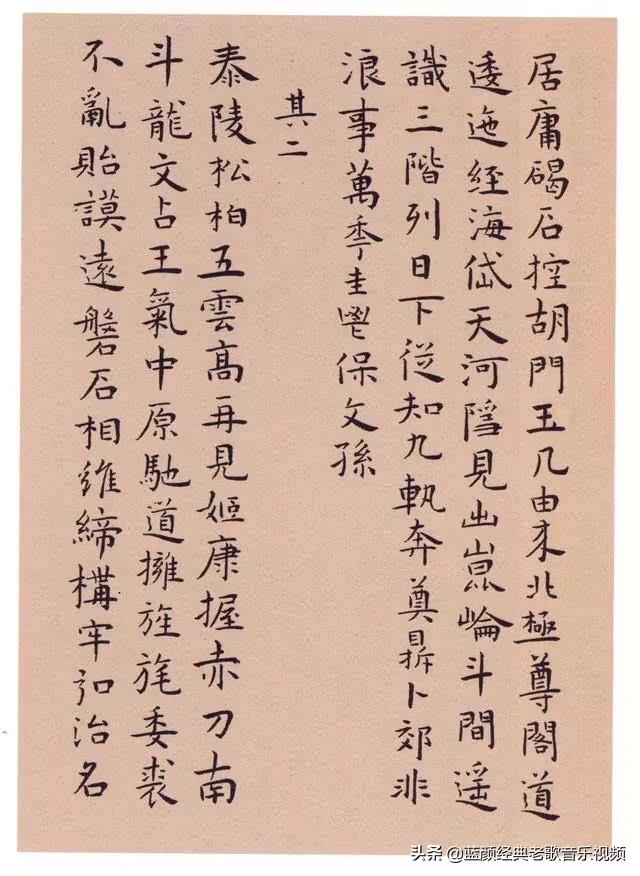 居庸碣石控胡門玉几由來北極尊閣道
逶迤經海岱天河隱見出崑崙斗間遥
識三階列日下從知九軌奔奠鼎卜郊非
浪事萬季圭鬯保文孫
其二
泰陵松柏五雲高再見姬康握赤刀南
斗龍文占王氣中原馳道擁旌旄委裘
不亂貽謨遠磐石相維締構牢弘治名
头条 @蓝颜经典老歌音乐视频